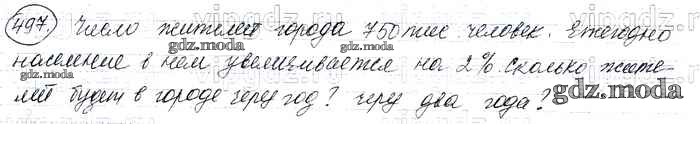 497. Число жителей города 750 тыс. человек. Ежегодно
население в нем увеличивается на 2%. Сколько жите-
лей будет в городе через год? через два года?
gdz.moda
gdz.moda
gdz.moda
gdz.moda
gdz.moda
gdz.moda